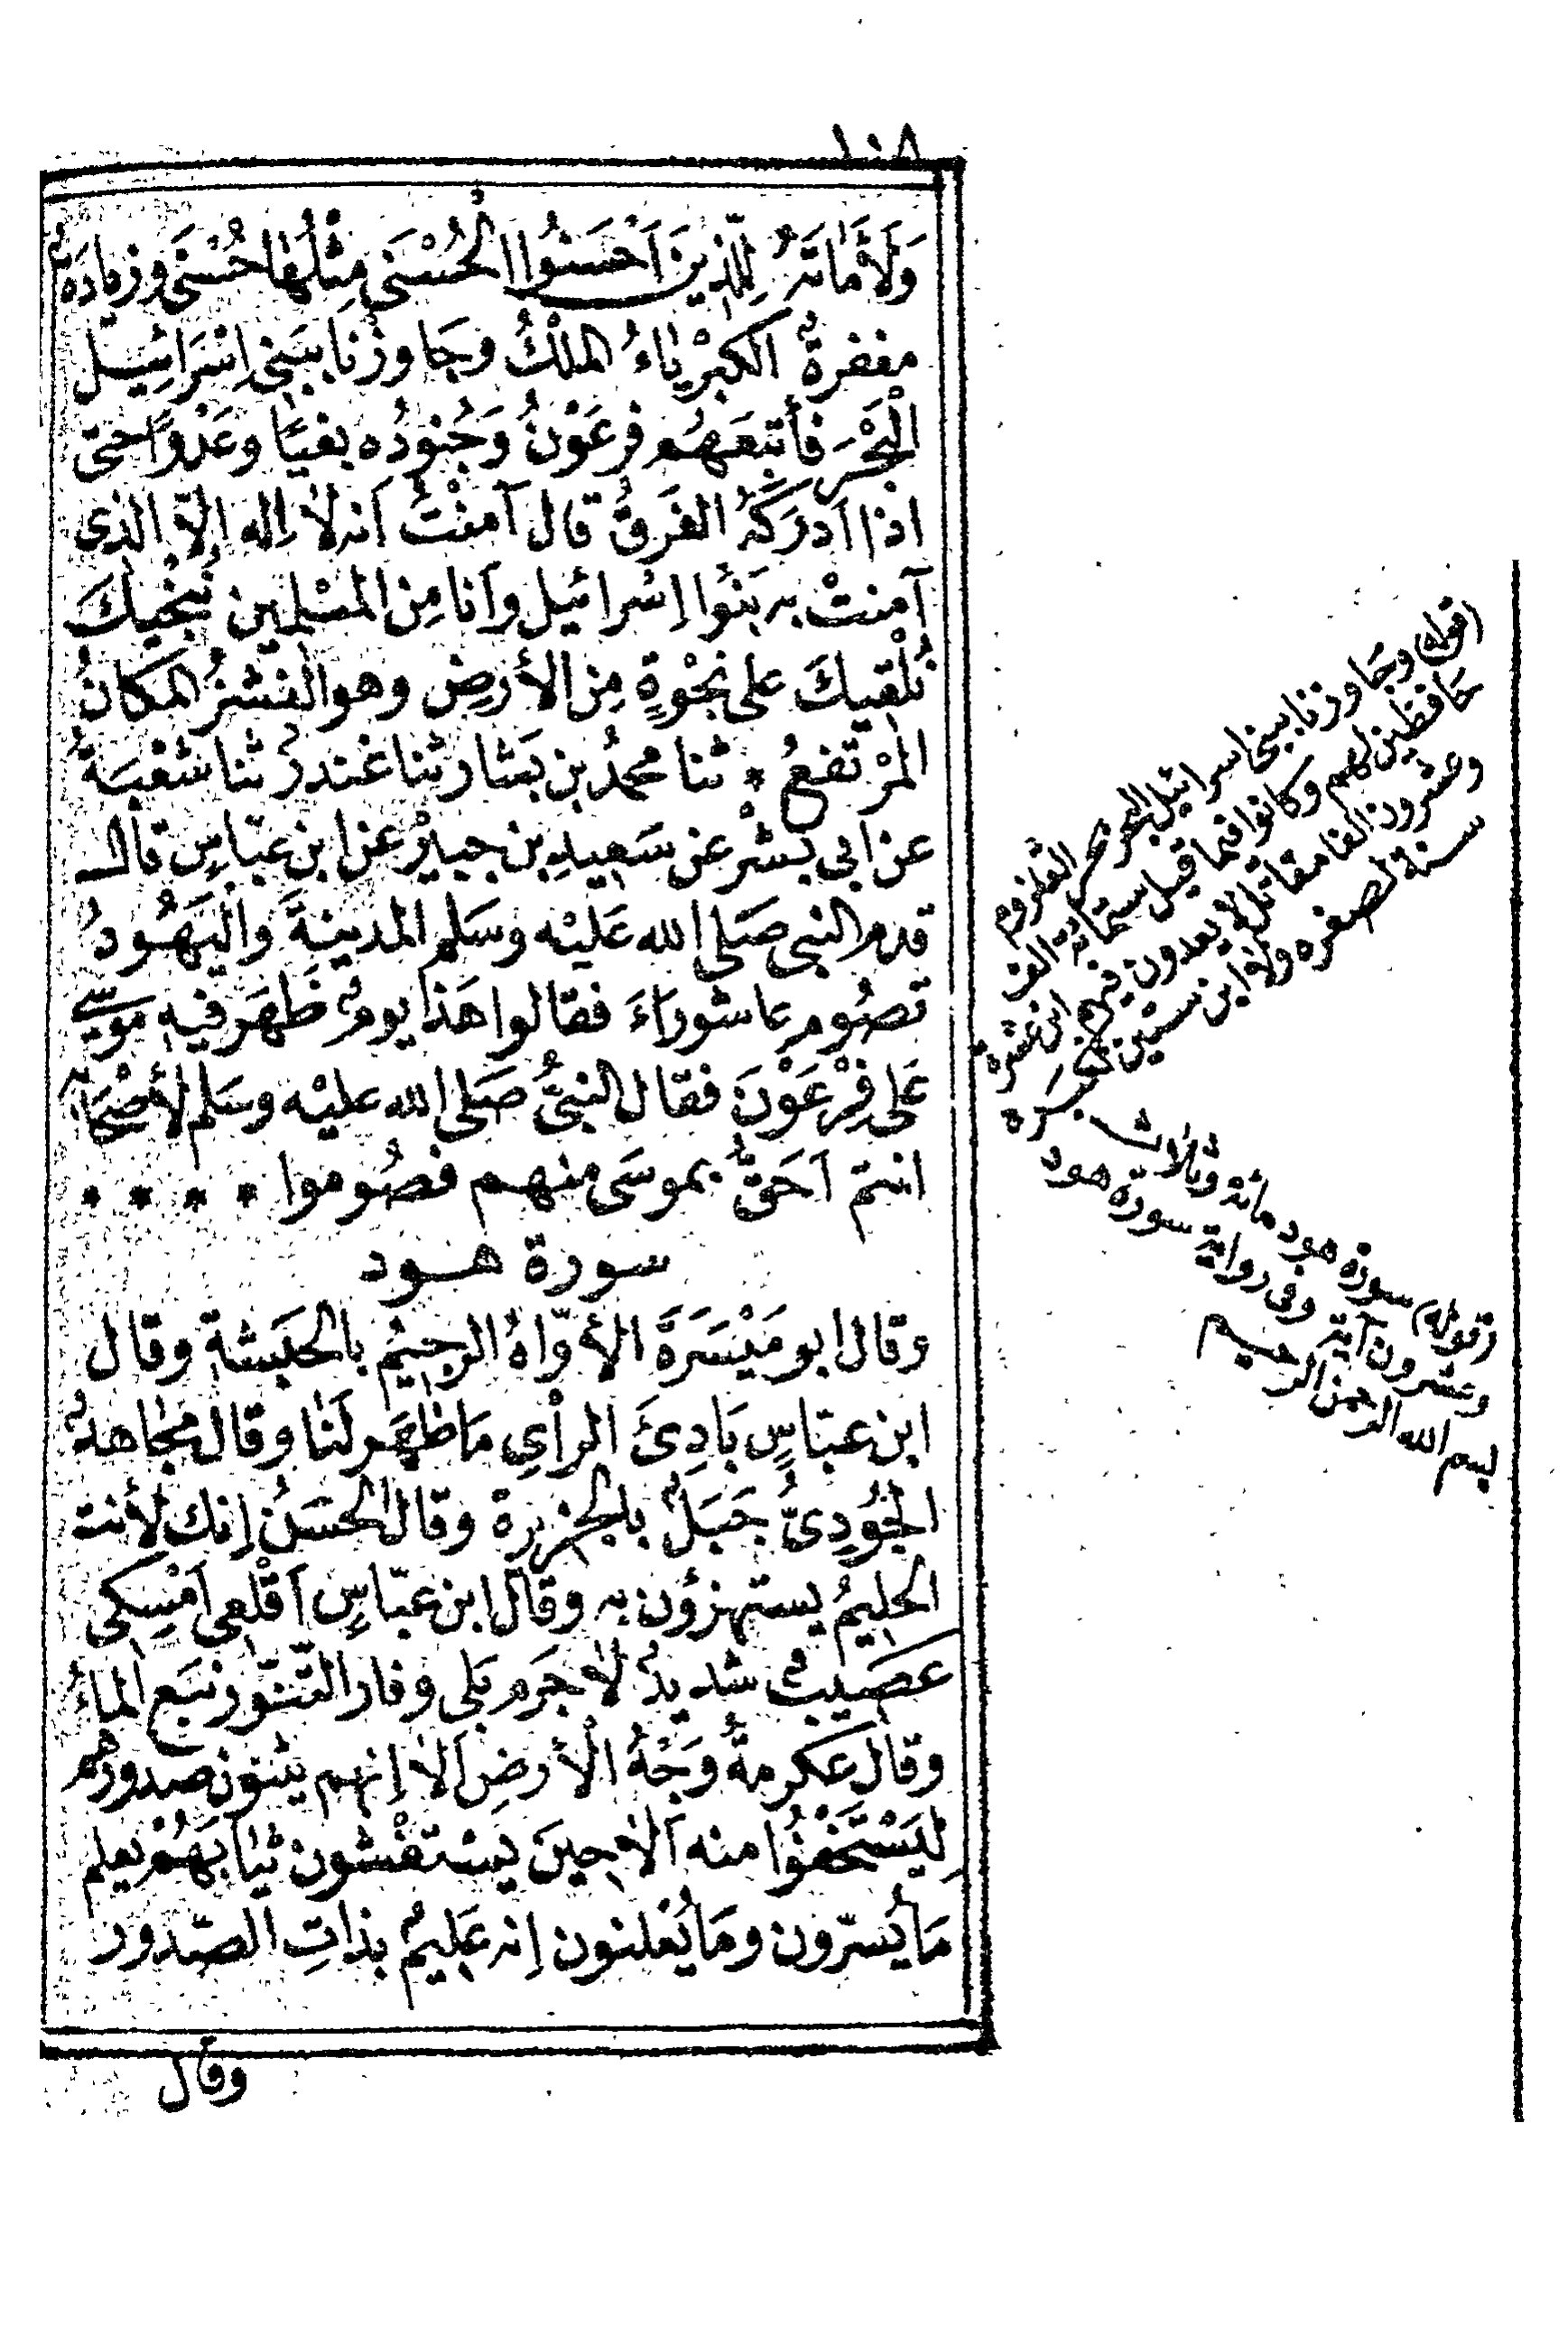 ١٠٨
وَلَأَمَاتَهُ لِلَّذِينَ اَحْسَنُوا الحُسْنَى مِثْلُهَا حُسْنَى وزيادَةٌ
مغفرةٌ الكِبْرِيَاءُ الملْكُ وجَاوزْنَا ببَنِى اِسْرَائِيل
الْبَحْرَ فأتبعَهُم فرعَوْنُ وَجُنودُه بغيًا وعَدْوًا حتى
اذا اَدرَكَهُ الغَرَقُ قال آمنْتُ اَنه لا اِله اِلاّ الذى
آمنتْ به بَنُوا اِسْرائيل وأنا مِن المسْلِمين نُنْجِيكَ
نُلْقيكَ على نجْوةٍ مِن الأرضِ وهو النشزُ المكانُ
المرْتفعُ * ثنا محمدُ بن بَشار ثنا غندرٌ ثنا شعْبَةُ
عن ابى بشْرٍ عن سَعِيدِ بن جبيْرٍ عن ابن عبّاسٍ قال
قدم النبى صَلى الله عَليْه وسَلم المدينةَ واليَهُودُ
تصُوم عاشورَاءَ فقالوا هَذا يومٌ ظهَر فيه موسَى
عَلى فِرْعَوْنَ فقال النبىُّ صَلى الله عليْه وسَلم لأصْحَابه
انتم اَحَقُّ بموسَى منهم فصُوموا * * * *
سورة هود
وقال ابو مَيْسَرَةَ الأوّاهُ الرحِيمُ بالحَبَشةِ وقال
ابن عبّاسٍ بَادِئَ الرأي مَا ظهَر لَنا وقال مجاهدٌ
الجُودِىُّ جَبَلٌ بالجزيرة وقال الحسَنُ اِنك لأنت
الحَلِيمُ يستهزؤن به وقال ابن عبّاسٍ اَقْلعى اَمْسِكى
عصَيبٌ شديدٌ لا جَرَم بَلى وفار التّنّور نبَع الماءُ
وقال عكرمةُ وَجْهُ الأرضِ اَلا اِنهم يثنون صدورهم
لِيَسْتَخْفُوا منه اَلا حِينَ يسْتغْشون ثيابَهُمْ يعلم
مَا يُسرّون ومَا يُعْلنون اِنه عَلِيمٌ بذاتِ الصّدور
وقال
(قوله) وجَاوزنا ببنى اسرائيل البحر هو القلزم
حافظين لهم وكانوا فيما قيل ستمائة الف
وعشرون الفا مقاتل لا يعدون فيهم ابن عشرة
سنة لصغره ولا ابن ستين لكبره
(قوله) سورة هود مائة وثلاث
وعشرون آية وفى رواية سورة هود
بسم الله الرحمن الرحيم